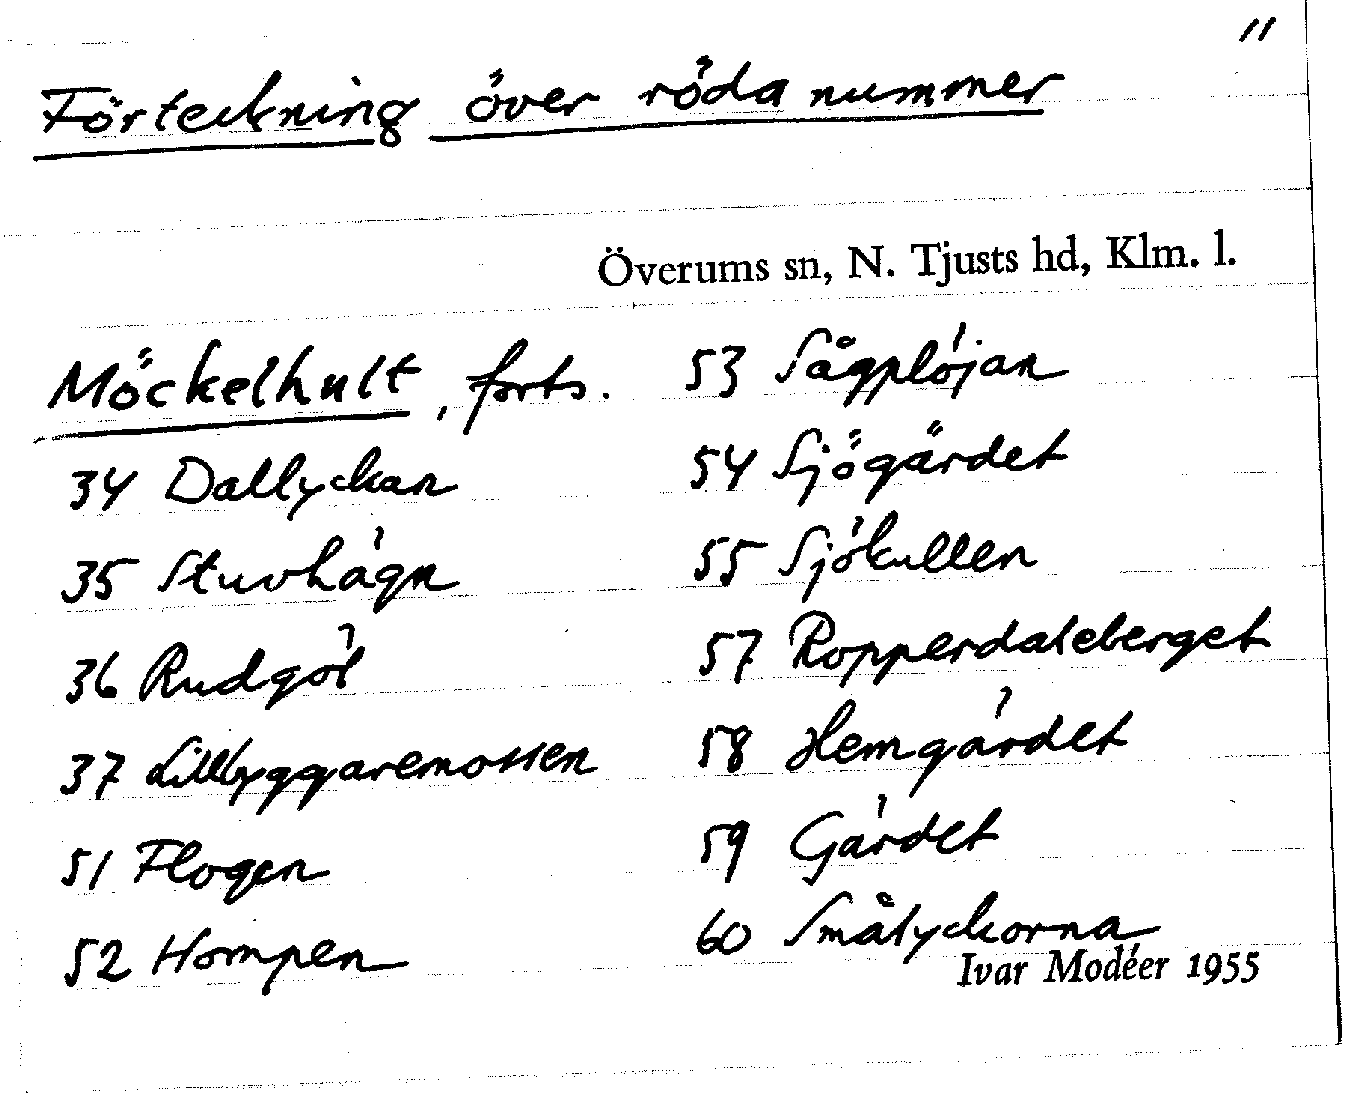 11
Förteckning över röda nummer
Överums sn, N. Tjusts hd, Klm. l.
Möckelhult, forts.
34 Dallyckan
35 Stuvhägn
36 Rudgöl
37 Lillbyggaremossen
51 Flogen
52 Hompen
53 Sågplöjan
54 Sjögärdet
55 Sjökullen
57 Ropperdaleberget
58 Hemgärdet
59 Gärdet
60 Smålyckorna
Ivar Modéer 1955